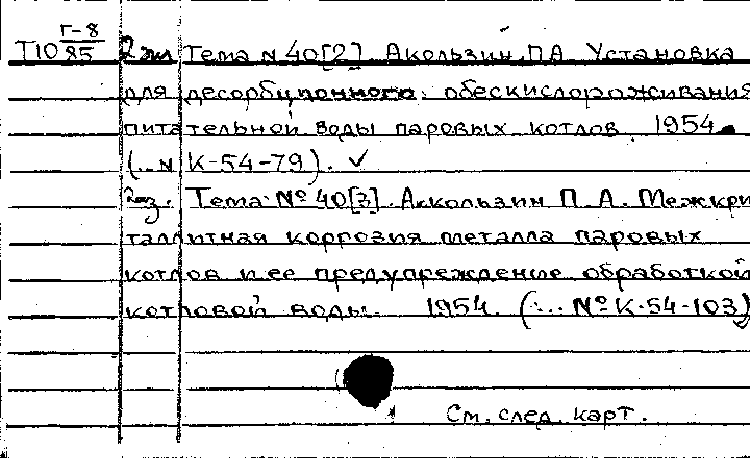 Г-8
Т10 85 2 экз Тема N 40[2]. Акользин, П.А. Установка
для десорбционного обескислороживания
питательной воды паровых котлов. 1954.
(... N К-54-79). ✓
Тема № 40[3]. Аккользин П. А. Межкри
таллитная коррозия металла паровых
котлов и ее предупреждение обработкой
котловой воды. 1954. (... № К-54-103)
См. след. карт.